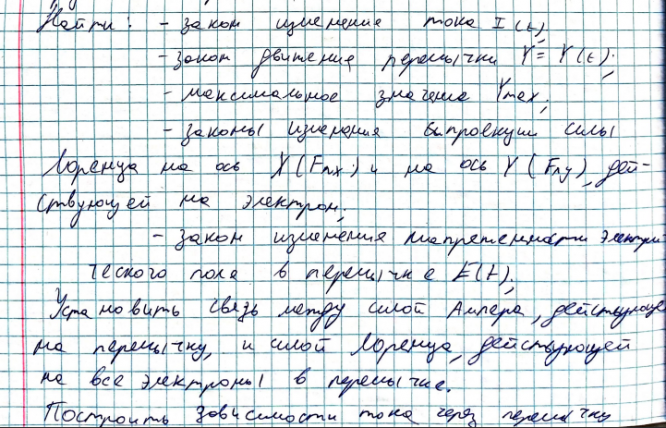 Найти: - закон изменение тока I(t),
- закон движение перемычки Y = Y(t);
- максимальное значение Ymax;
- законы изменения проекции силы
Лоренца на ось X (Fлx) и на ось Y (Fлy), дей-
ствующей на электрон;
- закон изменения напряженности электри
ческого поля в перемычке E(t);
Установить связь между силой Ампера, действующе
на перемычку, и силой Лоренца, действующей
на все электроны в перемычке.
Построить зависимости тока через перемычку